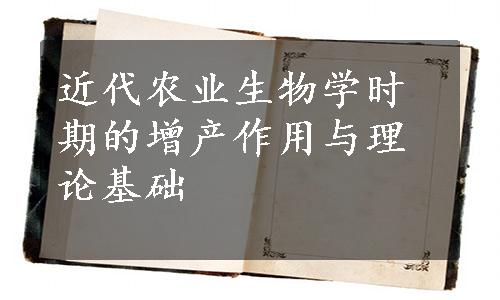 近代农业生物学时
期的增产作用与理
论基础